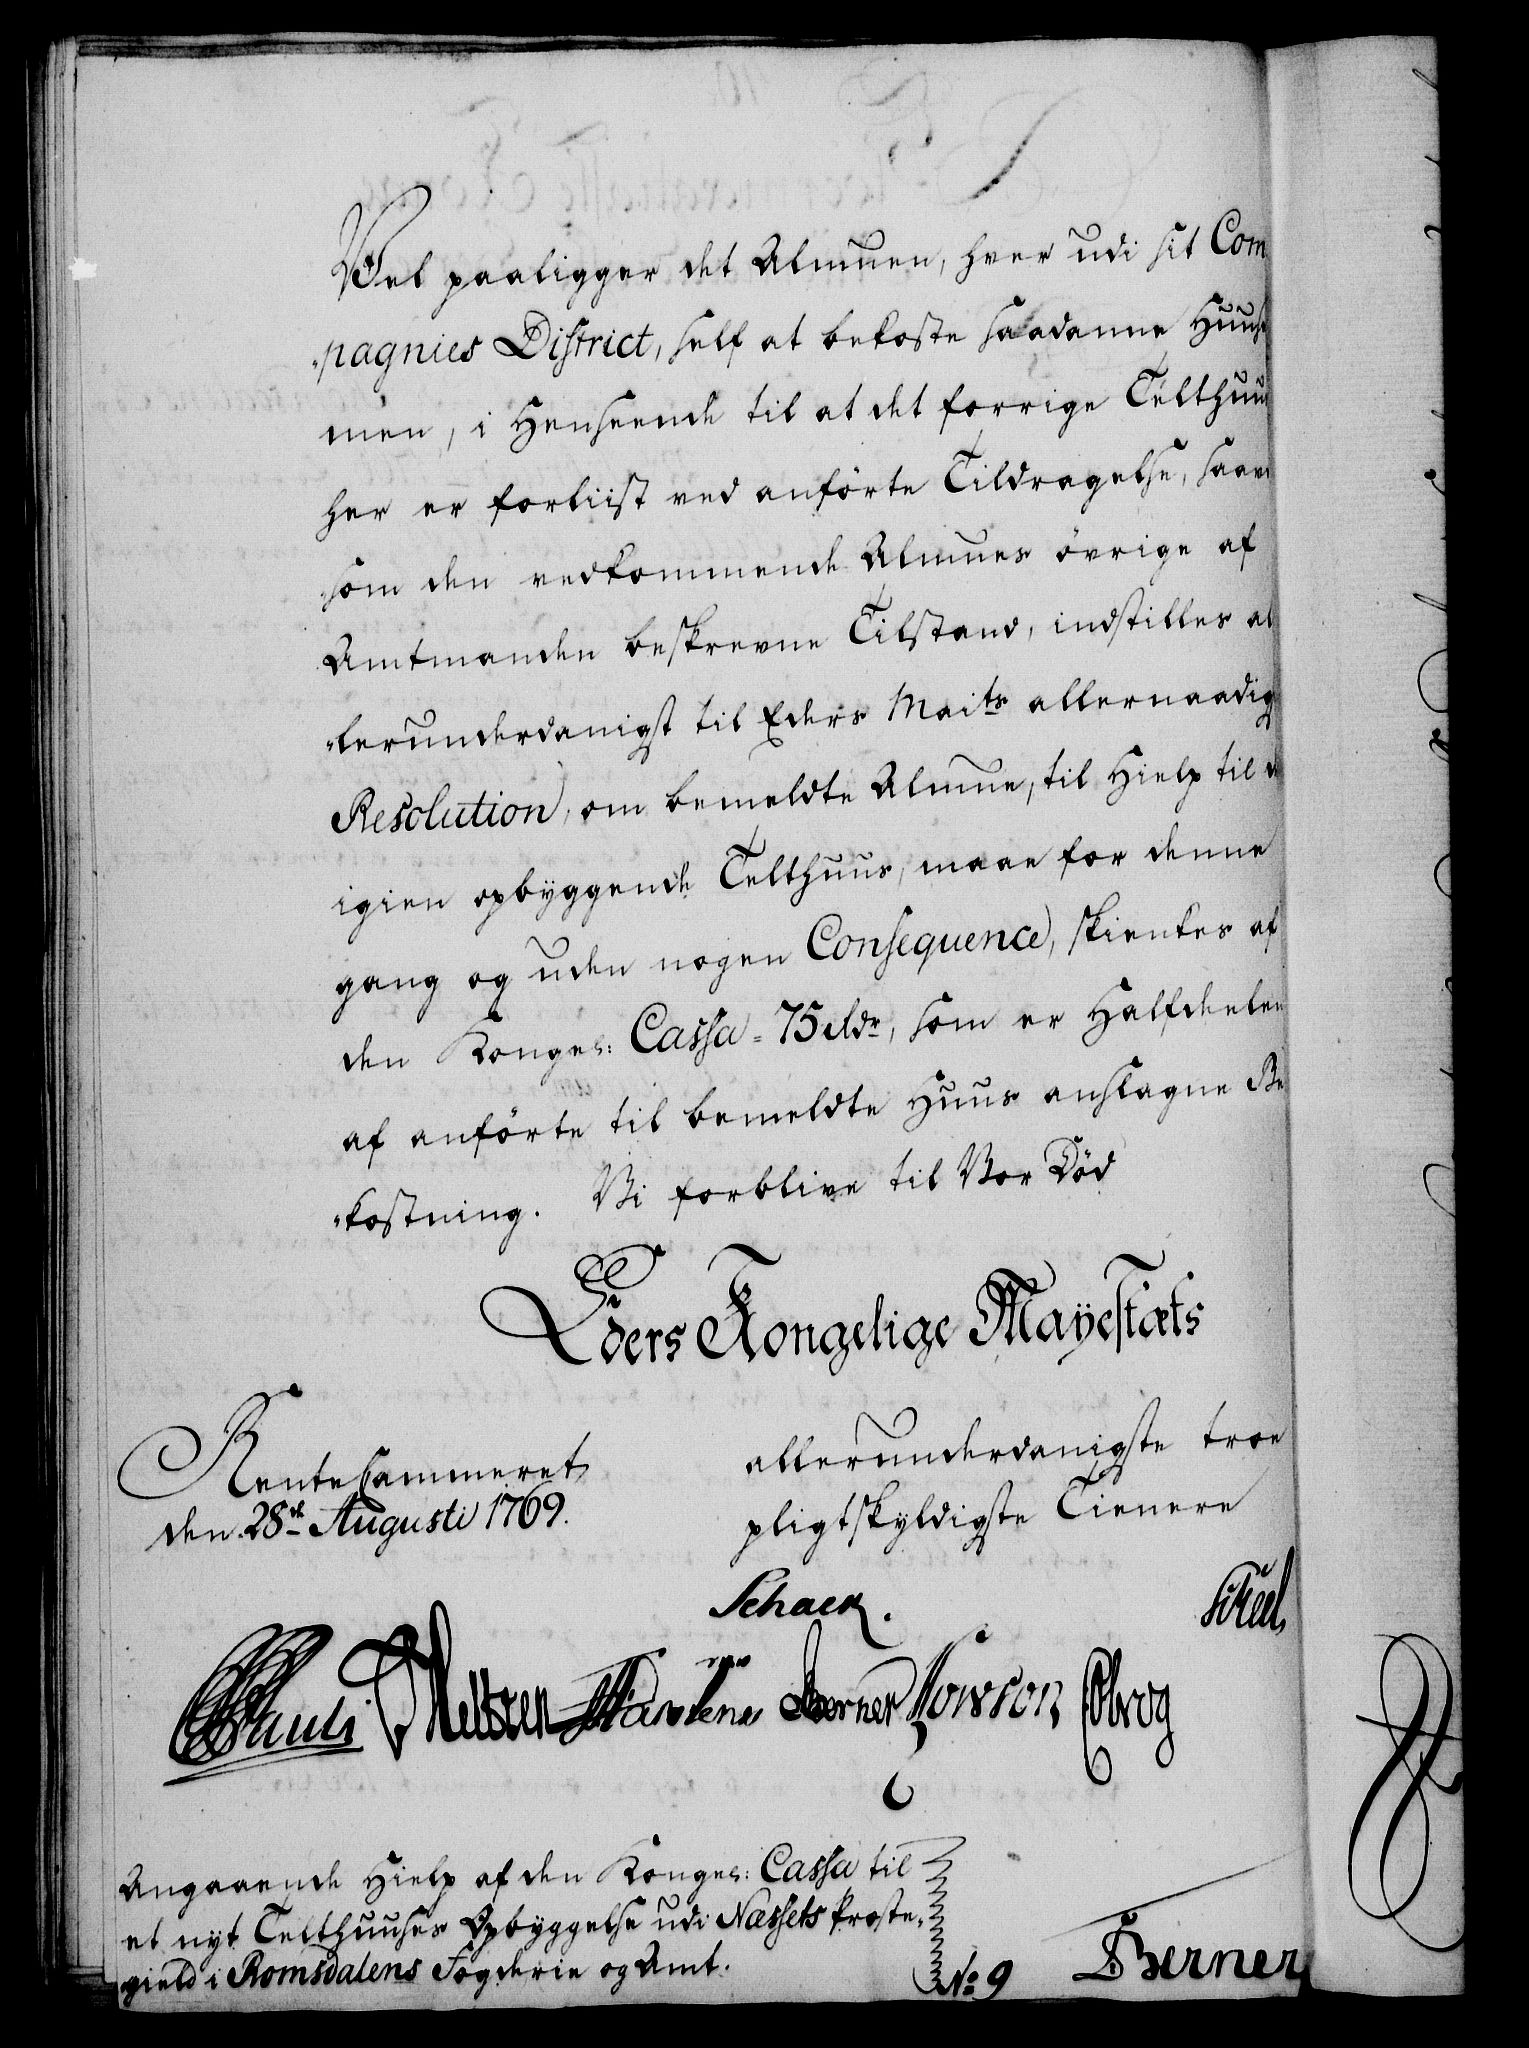 Vel paaligger det Almuen, hver udi sit Com
pagnies District, self at bekoste saadanne Huuse
men, i Henseende til at det forrige Telthuus
her er forliist ved anförte Tildragelse, saavel
som den vedkommende Almues övrige af
Amtmanden beskrevne Tilstand, indstilles al
lerunderdanigst til Eders Maits allernaadigste
Resolution, om bemeldte Almue, til Hielp til det
igien opbyggende Telthuus, maae for denne
gang og uden nogen Consequence, skienkes af
den Kongel: Cassa = 75 rdr, som er Halfdeelen
af anförte til bemeldte Huus anslagne Be
kostning. Vi forblive til Vor Död
Eders Kongelige Mayestæts
RenteCammeret
den 28de Augusti 1769.
allerunderdanigste troe
pligtskyldigste Tienere
Schack. Scheel
Pauli Berner Cobrog
Angaaende Hielp af den Kongel: Cassa til
et nyt Telthuuses Opbyggelse udi Næssets Præste=
gield i Romsdalens Fogderie og Amt.
No 9
Berner